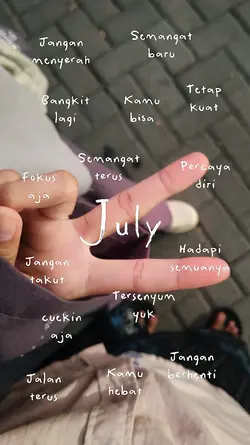 Jangan
menyerah
Semangat
baru
Bangkit
lagi
Kamu
bisa
Tetap
kuat
Semangat
terus
Percaya
diri
Fokus
aja
July
Jangan
takut
Hadapi
semuanya
Tersenyum
yuk
cuekin
aja
Jangan
berhenti
Jalan
terus
Kamu
hebat